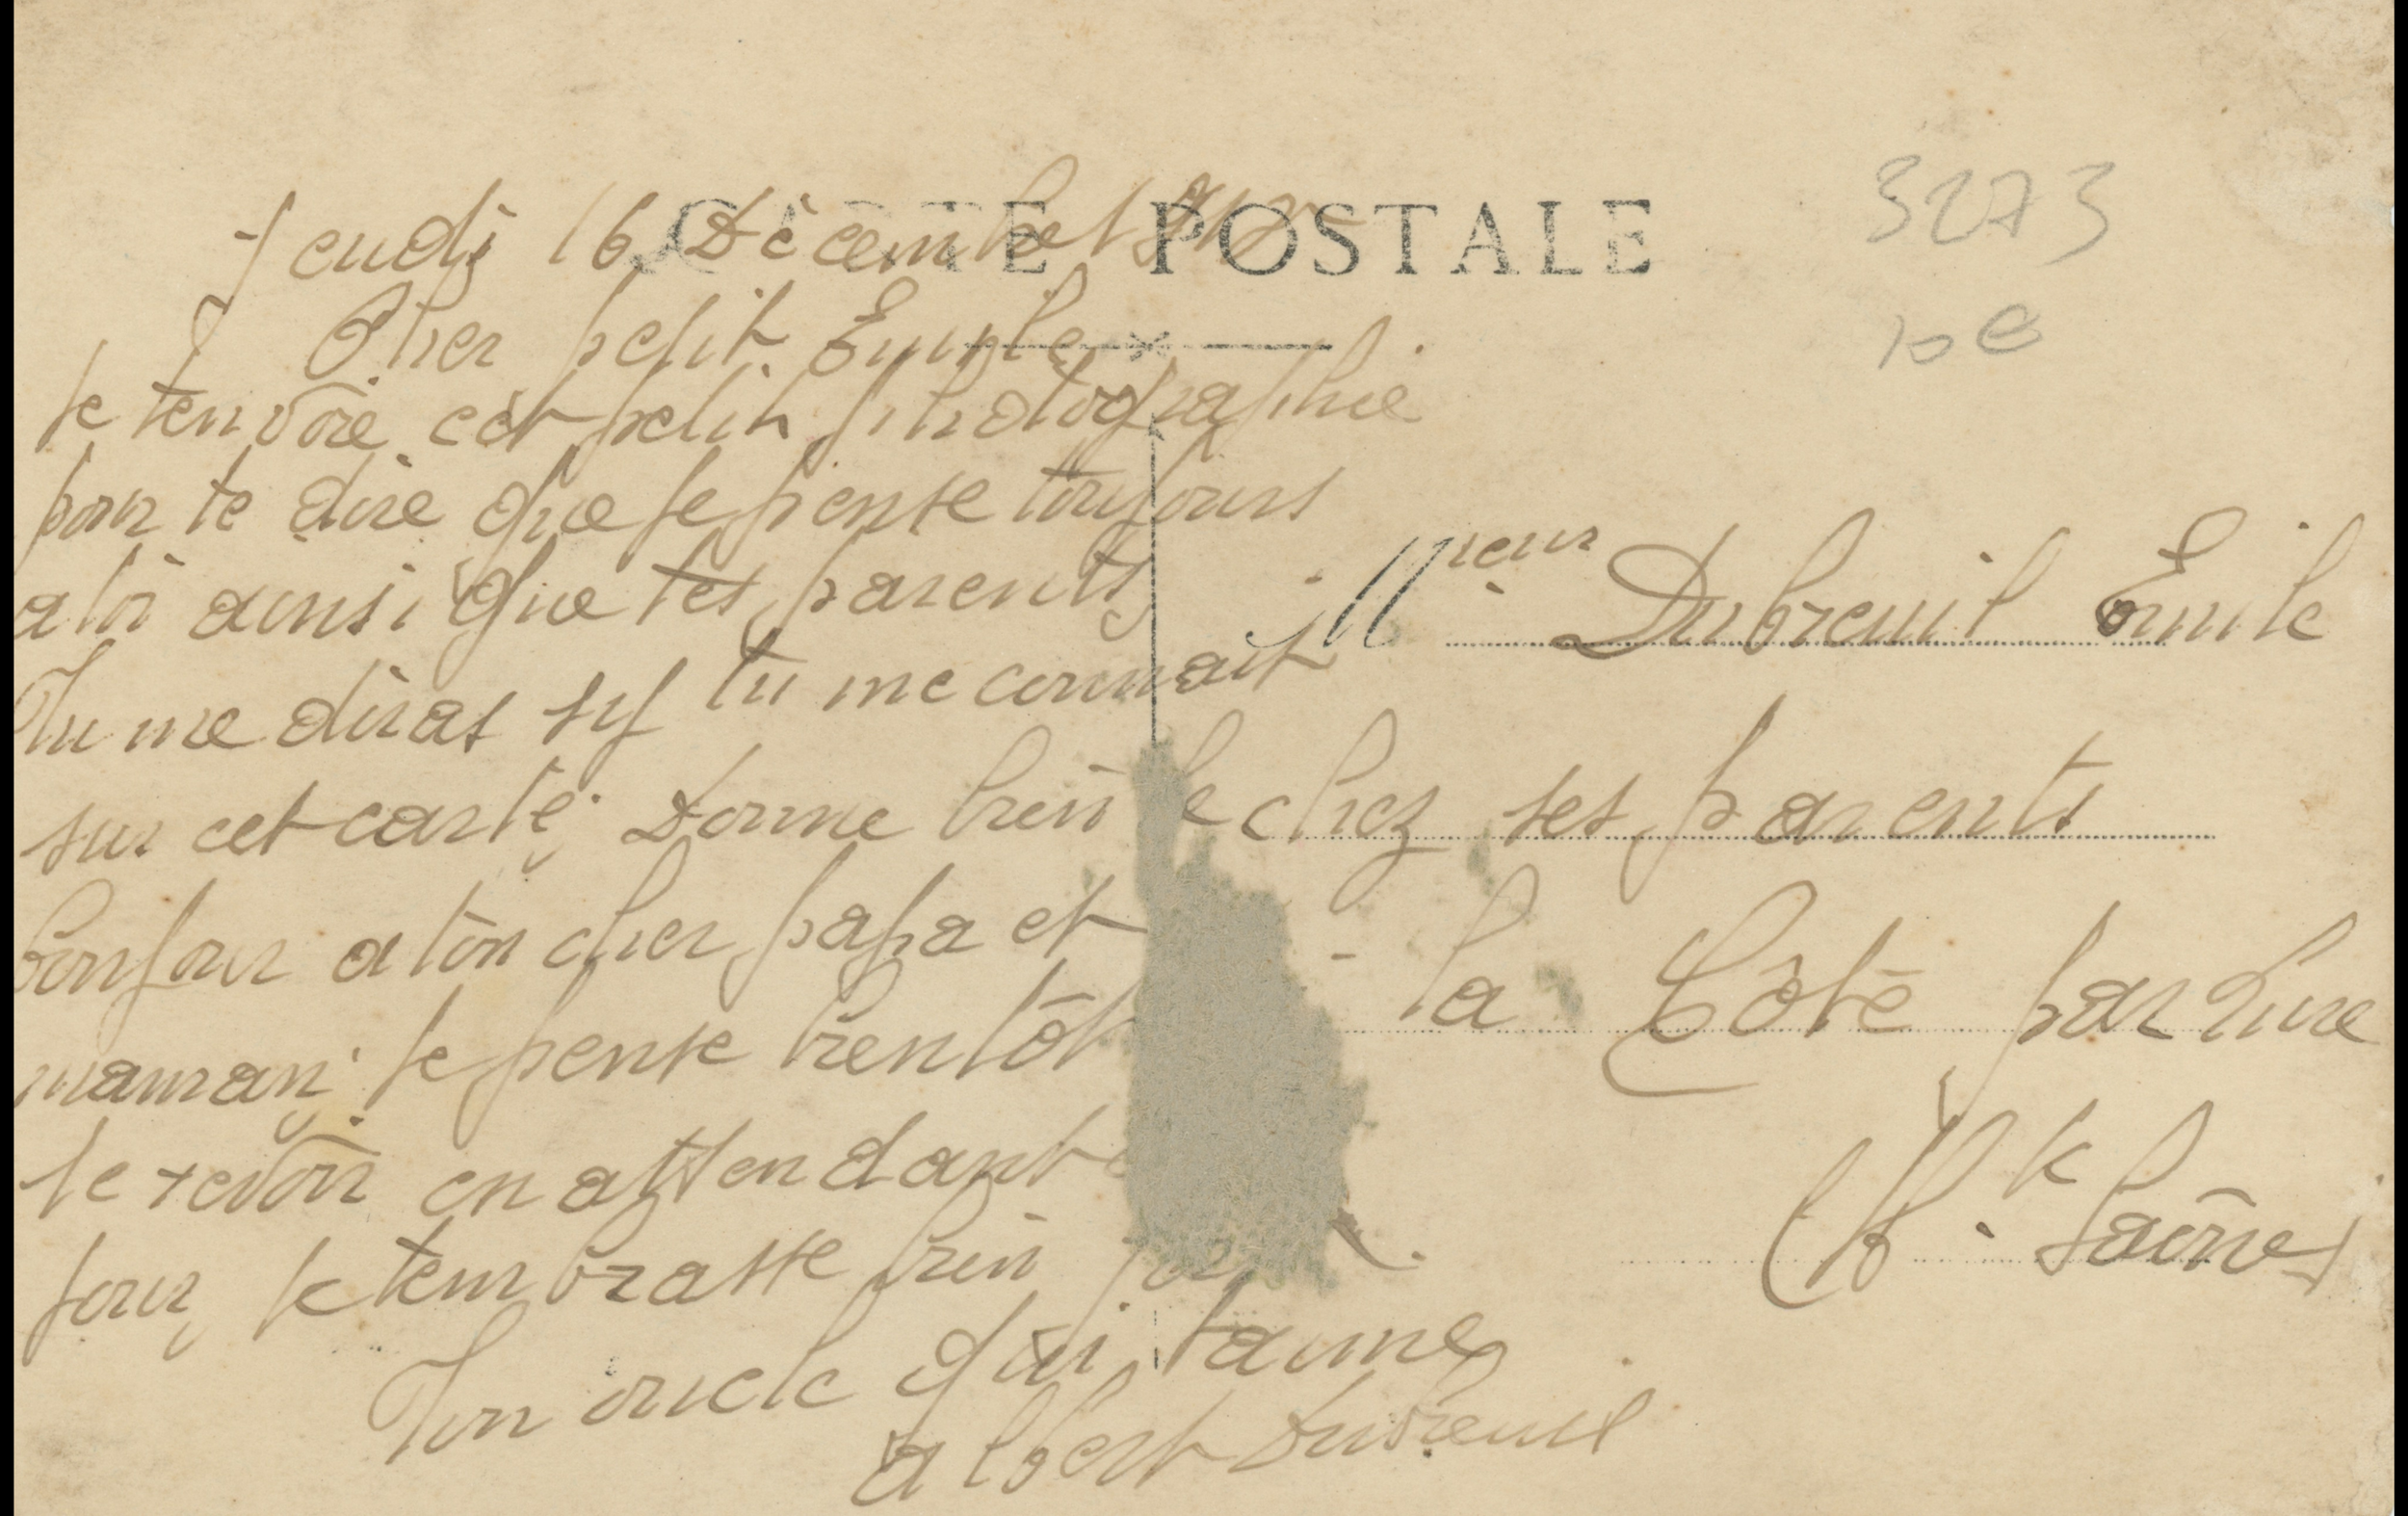 CARTE POSTALE
3273
10 €
Jeudi 16 Décembre
Cher petit Emile
Je tenvoie cet petit photographie
pour te dire que je pense toujours
a toi ainsi que tes parents
Tu me diras sy tu me connait
sur cet carte, Donne bien le
bonjour a ton cher papa et
maman, Je pense bientôt
te revoir en attendant ce
jour, je tembrasse bien
Ton oncle qui taime
albert Dubreuil
Mr Dubreuil Emile
chez ses parents
la Côte par Lure
Hte Saône